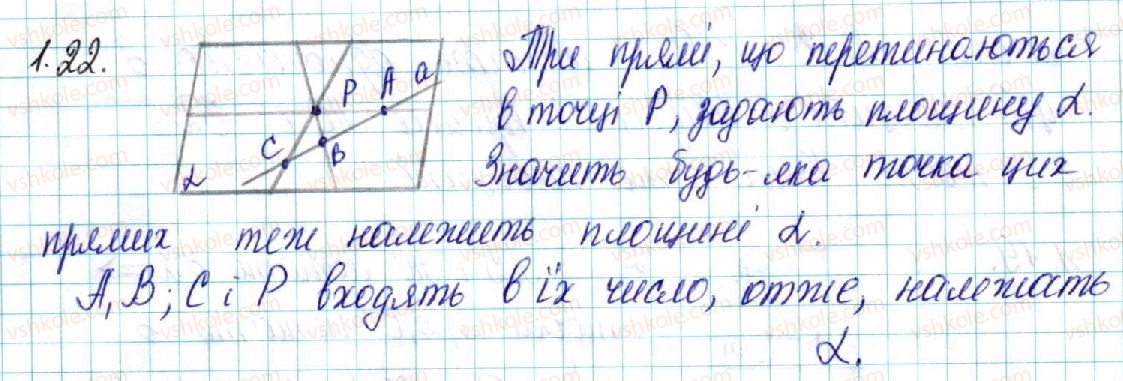 1.22.
Три прямі, що перетинаються
в точці P, задають площину α.
Значить будь-яка точка цих
прямих теж належить площині α.
A, B; C і P входять в їх число, отже, належать
α.
P A a
C B
α
vshkole.com